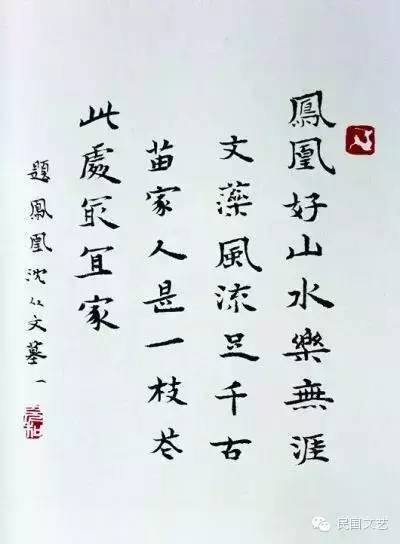 鳳凰好山水樂無涯
文藻風流足千古
苗家人是一枝花
此處最宜家
題鳳凰沈从文墓一
充和
民国文艺